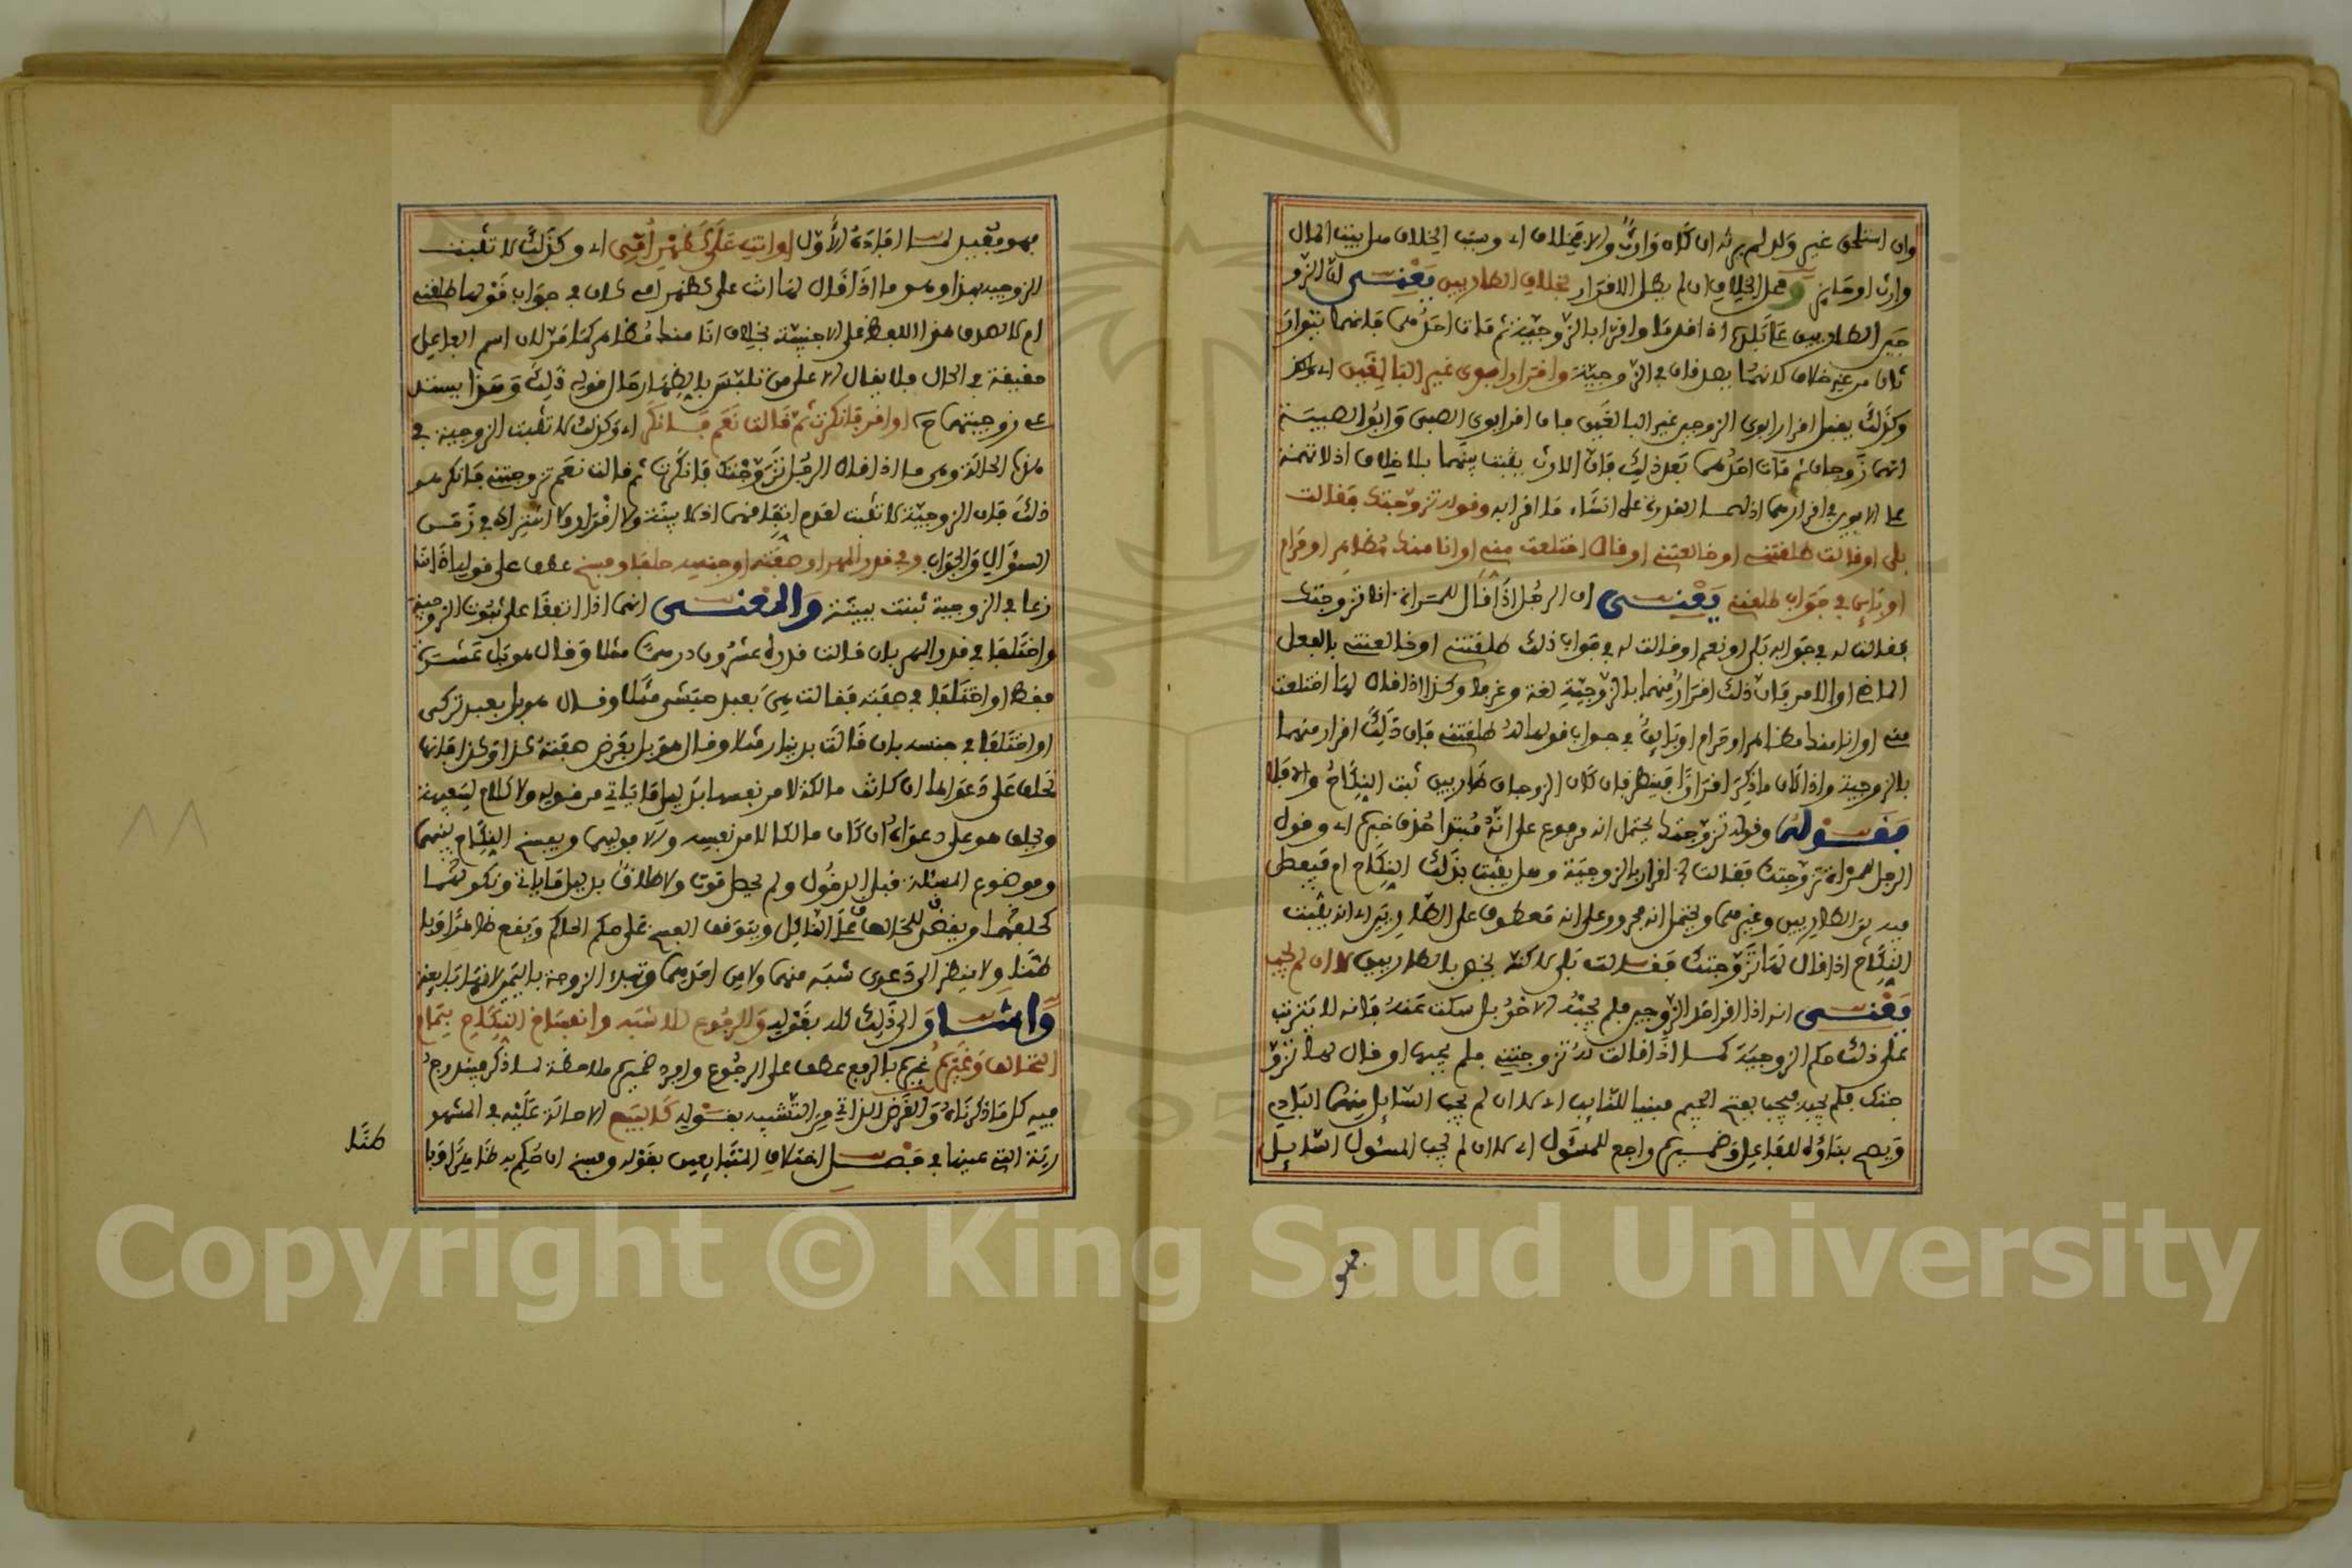 وان استلحق غير ولد لم يرثه ان كان وارث والا فخلاف اه وسبب الخلاف هل بيت المال
وارث او حايز ومحل الخلاف ان لم يطل الاقرار بخلاف الطاريين يعنى ان الزو
جين الطاريين على بلد اذا قدما واقرا بالزوجية ثم مات احدهما فانهما يتوار
ثان من غير خلاف لانهما يصدقان فى الزوجية واقرار ابوى غير البالغين اه
وكذلك يقبل اقرار ابوى الزوجين غير البالغين فان اقر ابوى الصبى وابوا الصبية
انهما زوجان ثم مات احدهما بعد ذلك فان الارث يثبت بينهما بلا خلاف اذ لا تهمة
على الابوين فى اقرارهما اذ لهما القدرة على انشاء ما اقرا به وقوله تزوجتك فقالت
بلى او قالت طلقتنى او خالعتنى او قال اختلعت منى او انا منك مظاهر او حرام
او باين فى جواب طلقنى يعنى ان الرجل اذا قال للمراة انا تزوجتك
فقالت له فى جوابه بلى او نعم او قالت له فى جواب ذلك طلقتنى او خالعتنى بالفعل
الماضى او الامر فان ذلك اقرار منهما بالزوجية لغة وعرفا وكذا اذا قال لها اختلعت
منى او انا منك مظاهر او حرام او باين فى جواب قولها له طلقنى فان ذلك اقرار منهما
بالزوجية واذا كان ما ذكر اقرارا فينظر فان كان الزوجان طاريين ثبت النكاح والا فلا
فقوله وقوله تزوجتك يحتمل انه مرفوع على انه مبتدا حذف خبره اه وقول
الرجل للمراة تزوجتك فقالت الخ اقرار بالزوجية وهل يثبت بذلك النكاح ام فيفصل
فيه بين الطاريين وغيرهما ويحتمل انه مجرور على انه معطوف على الطاريين اه انه يثبت
النكاح اذا قال لها تزوجتك فقالت بلى لاكنه يخص بالطاريين لا ان لم يجب
يعنى انه اذا اقر احد الزوجين فلم يجبه الاخر بل سكت عنه فانه لا يترتب
على ذلك حكم الزوجية كما اذا قالت له تزوجتنى فلم يجبها او قال لها تزو
جتك فلم تجبه فيجب بفتح الجيم مبنيا للنايب اه لا ان لم يجب السايل منهما البادى
ويصح بناؤه للفاعل وضميره راجع للمسئول اه لا ان لم يجب المسئول السايل
فهو
فهو مقبل لما افاده الاول او انت على كظهر امى اه وكذلك لا تثبت
الزوجية بهذا وهو ما اذا قال لها انت على كظهر امى كان فى جواب قولها طلقنى
ام لا لصدق هذا اللفظ على الاجنبية بخلاف انا منك مظاهر كما مر لان اسم الفاعل
حقيقة فى الحال فلا يقال الا على من تلبس بالظهار حال قوله ذلك وهذا يستد
عى زوجيتهما ح او اقر فانكرت ثم قالت نعم فانكر اه وكذلك لا تثبت الزوجية فى
هذه الحالة وهى ما اذا قال الرجل تزوجتك فانكرت ثم قالت نعم تزوجتنى فانكر هو
ذلك فان الزوجية لا تثبت لعدم اتفاقهما اذ لا بينة ولا اقرار ولا اشتراك فى زمن
السؤال والجواب وفى قدر المهر او صفته او جنسه حلفا وفسخ عطف على قوله اذا تنا
زعا فى الزوجية ثبتت ببينة والمعنى انهما اذا اتفقا على ثبوت الزوجية
واختلفا فى قدر المهر بان قالت قدره عشرون درهما مثلا وقال هو بل عشرة
فقط او اختلفا فى صفته فقالت هى بعبد حبشى مثلا وقال هو بل بعبد تركى
او اختلفا فى جنسه بان قالت بدينار مثلا وقال هو بل بعرض صفته كذا وكذا فانها
تحلف على دعواها ان كانت مالكة لامر نفسها بدليل ما ياتى من قوله ولا كلام لسفيهة
ويحلف هو على دعواه ان كان مالكا لامر نفسه والا فوليهما ويفسخ النكاح بينهما
وموضوع المسئلة قبل الدخول ولم يحصل موت ولا طلاق بدليل ما ياتى ونكولهما
كحلفهما ويقضى للحالف على الناكل ويتوقف الفسخ على حكم الحاكم ويقع ظاهرا وبا
طنا ولا ينظر الى دعوى شبه منهما ولا من احدهما وتبدا الزوجة باليمين لانها بايعة
واشار الى ذلك كله بقوله والرجوع للاشبه وانفساخ النكاح بتمام
التحالف وغيره غيره بالرفع عطف على الرجوع وافرد ضميره ملاحظة لما ذكر فيندرج
فيه كل ما ذكرناه والغرض الذاتى من التشبيه بقوله كالبيع الاحالة عليه فى المشهو
رية التى عينها فى فصل اختلاف المتبايعين بقوله وفسخ ان حكم به ظاهرا وبا
طنا
٨٨